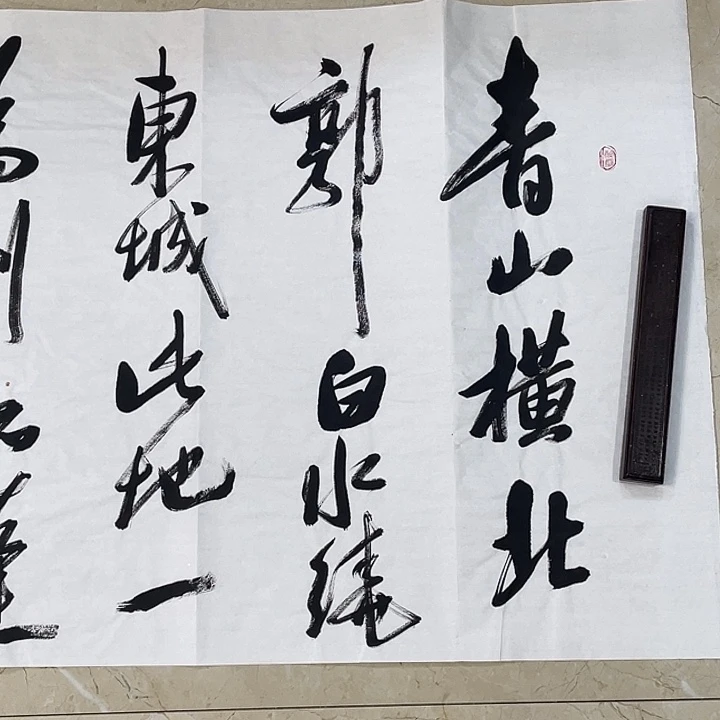 青山橫北
郭白水繞
東城此地一
為別孤蓬